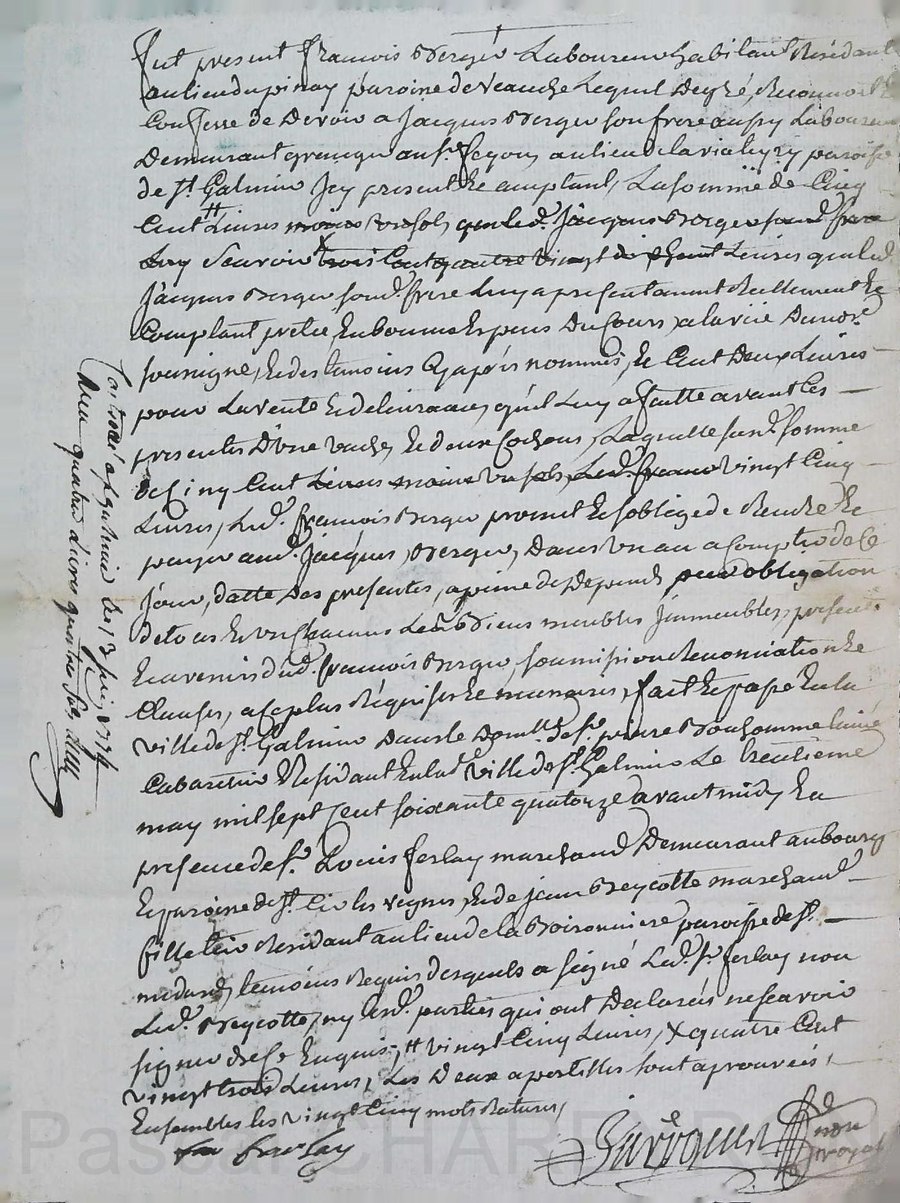 fut present francois Berger Laboureur habitant Residant
au lieu du pinay paroine de Veauche Lequel De gré, Reconnoit &
Confesse de Devoir a Jacques Berger son frere aussy Laboureur
Demeurant granger au sr au lieu de paroisse
de st Galmier Icy present Ke acceptant, La somme de Cinq
Cent # Livres moins un sols, que led. Jacques Berger sond. frere
Luy Scavoir X trois Cent quatre vingt dix Livres que led.
Jacques Berger sond. frere Luy a presentement Reellement Ke
Comptant pretée En bonnes Espens Du Cours, a la vüe Du nore
soussigné, Ke des temoins Cy apres nommés, Ke Cent Deux Livres
pour La vente Ke delivrance, qu'il Luy a faitte avant Les
presentes D'une vache, Ke deux Cochons, Laquelle susd. somme
de Cinq Cent Livres moins un sols, Led. francois vingt Cinq
Livres, Led. francois Berger promet Ke s'oblige de Rendre Ke
payer aud. Jacques Berger, Dans un an a Compter de Ce
jour, datte Des presentes, a peine de Depends pour obligation
de tous Ke un Chacuns Ses Biens meubles Jmmeubles, presents
Ke avenirs dud. francois Berger, soumission Renonciation Ke
Clauses, a Ce plus Requises Ke necessaires, fait Ke passé En la
ville de st Galmier Dans le Domlle de sr pierre Bonhomme lainé
Cabaretier Residant En lad. ville de st Galmier Le trentieme
may mil sept Cent soixante quatorze avant midy En
presence de sr Louis ferlay marchand Demeurant au bourg
Ke paroine de st Cir les vignes, Ke de jean Breycotte marchand
filletier Residant au lieu de la Boironniere paroisse de st
medard, temoins Requis desquels a signé Led. sr ferlay non
Led. Breycotte, ny Lesd. parties qui ont Declarés ne scavoir
signer de Ce Enquis, # vingt Cinq Livres, X quatre Cent
vingt trois Livres, Les Deux apostilles sont aprouvées,
Ensembles les vingt Cinq mots Ratures,
ferlay
nore royal
Controllé a st Galmier Le 13 juin 1774
Reçu quatre livres quatre sols
Pascal CHAREN